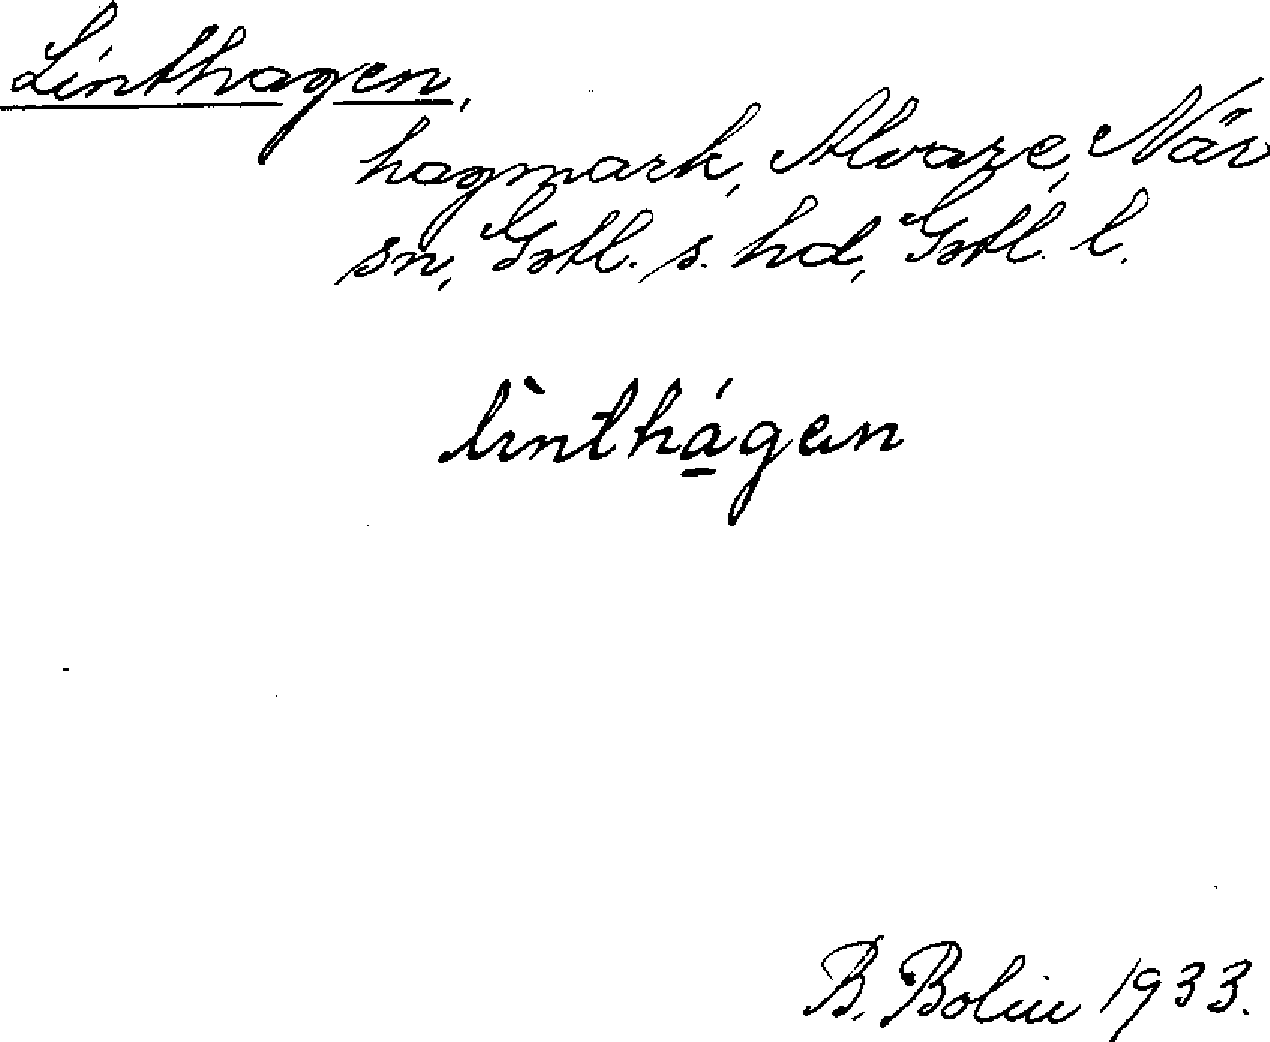 Linthagen,
hagmark, Alvare, När
sn, Gotl. s. hd, Gotl. l.
lìnthágen
B. Bolin 1933.